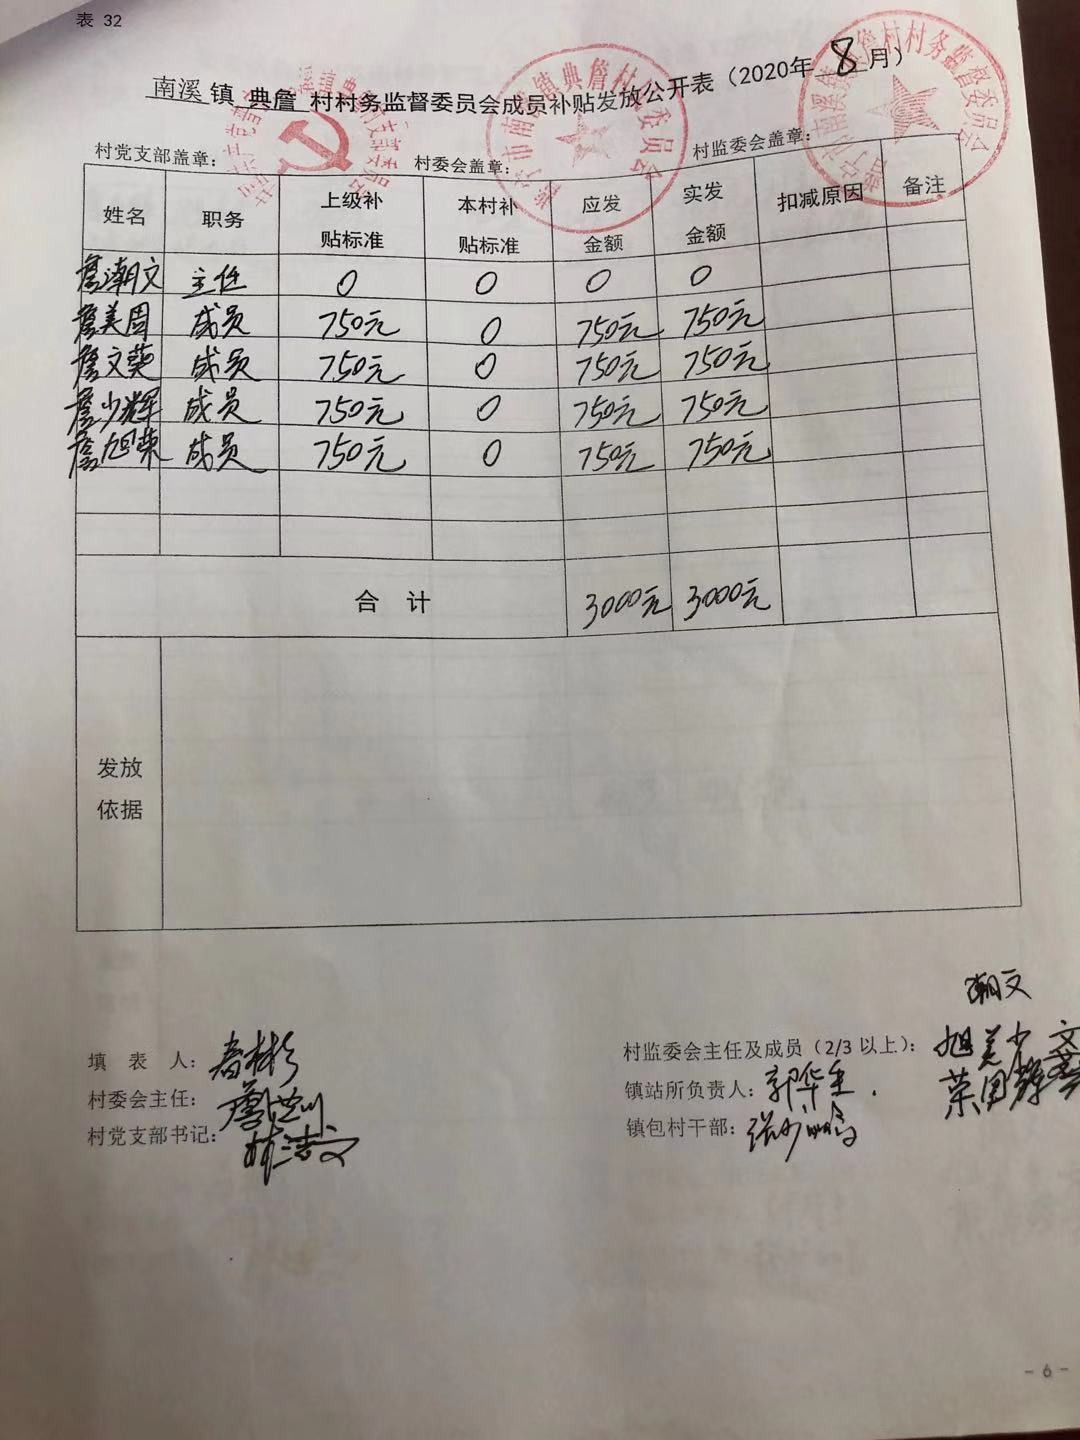 表 32
南溪镇 典詹 村村务监督委员会成员补贴发放公开表（2020年 8 月）
村党支部盖章： 村委会盖章： 村监委会盖章：
姓名 职务 上级补贴标准 本村补贴标准 应发金额 实发金额 扣减原因 备注
詹潮文 主任 0 0 0 0
詹美周 成员 750元 0 750元 750元
詹文葵 成员 750元 0 750元 750元
詹少辉 成员 750元 0 750元 750元
詹旭荣 成员 750元 0 750元 750元
合 计 3000元 3000元
发放
依据
潮文
填 表 人： 村监委会主任及成员（2/3 以上）： 旭荣 美周 少辉 文葵
村委会主任： 镇站所负责人：
村党支部书记： 镇包村干部：
- 6 -